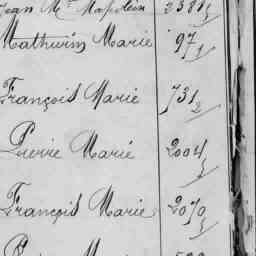 Jean Mie Napoléon 2381/3
Mathurin Marie 97/1
François Marie 731/2
Pierre Marie 2004/3
François Marie 2070/3
Marie